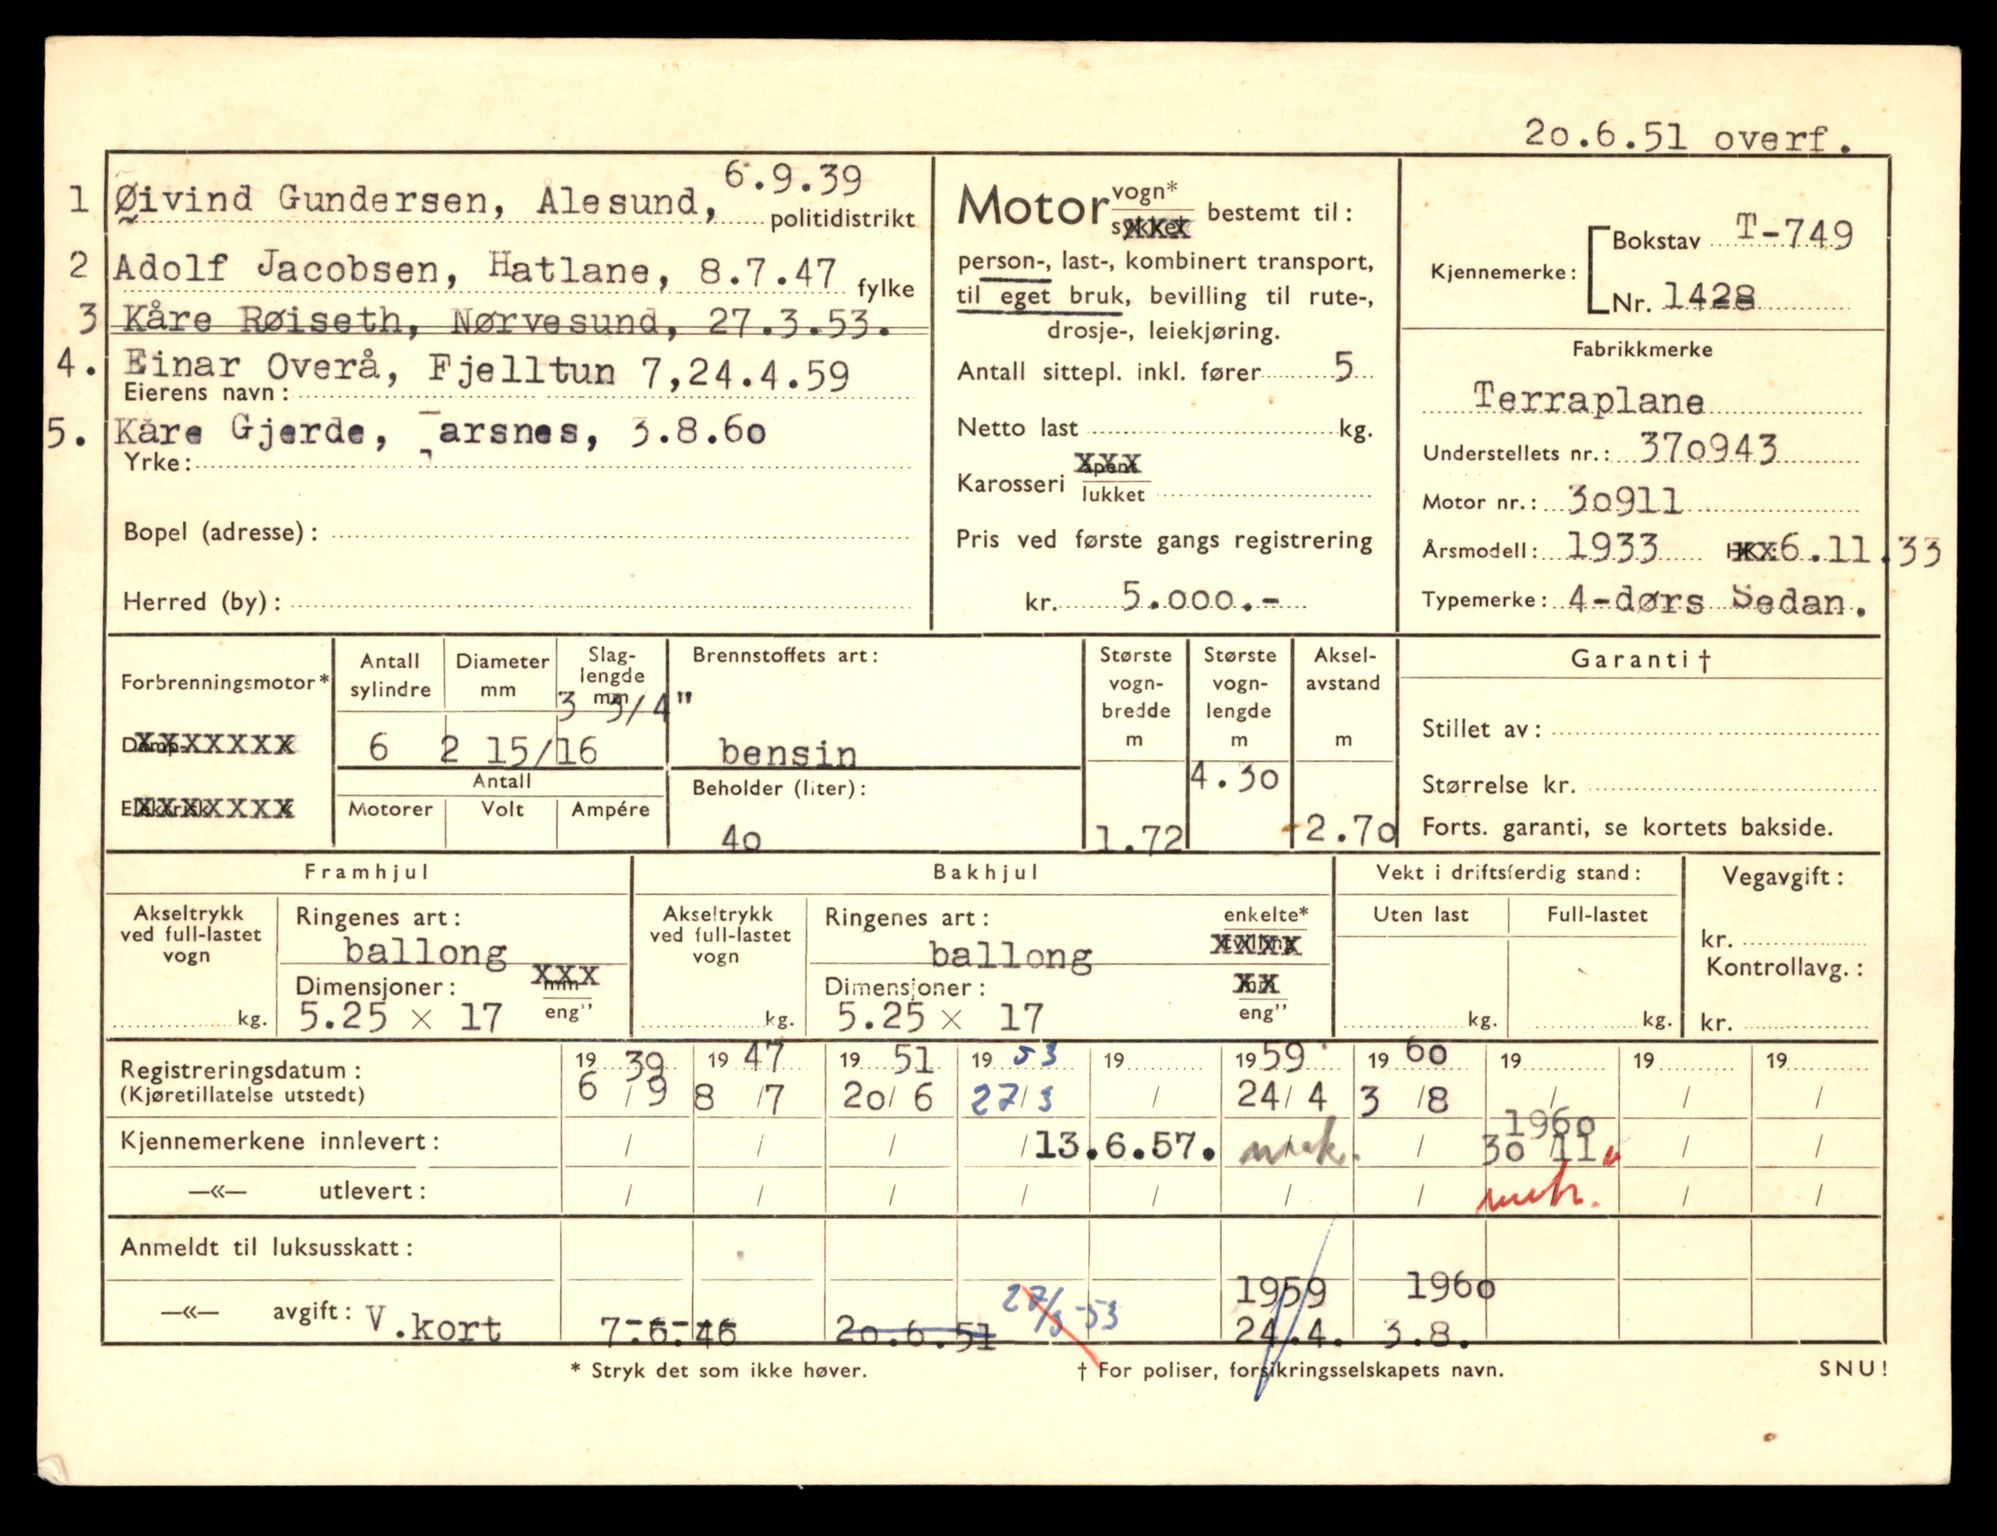 20.6.51 overf.
1 Øivind Gundersen, Alesund, 6.9.39
politidistrikt
2 Adolf Jacobsen, Hatlane, 8.7.47
fylke
3 Kåre Røiseth, Nørvesund, 27.3.53.
4. Einar Overå, Fjelltun 7,24.4.59
Eierens navn:
5. Kåre Gjerde, arsnes, 3.8.60
Yrke:
Bopel (adresse):
Herred (by):
Motor vogn* bestemt til:
sykkel
person-, last-, kombinert transport,
til eget bruk, bevilling til rute-,
drosje-, leiekjøring.
Antall sittepl. inkl. fører 5
Netto last kg.
Karosseri åpent
lukket
Pris ved første gangs registrering
kr. 5.000.-
Kjennemerke: Bokstav T-749
Nr. 1428
Fabrikkmerke
Terraplane
Understellets nr.: 370943
Motor nr.: 30911
Årsmodell: 1933 HK XX 6.11.33
Typemerke: 4-dørs Sedan.
Forbrenningsmotor*
Damp- XXXXXXX
Elektrisk XXXXXXX
Antall sylindre
6
Diameter mm
2 15/16
Slag-
lengde
mm
3 3/4"
Antall
Motorer Volt Ampére
Brennstoffets art:
bensin
Beholder (liter):
40
Største
vogn-
bredde
m
1.72
Største
vogn-
lengde
m
4.30
Aksel-
avstand
m
2.70
Garanti†
Stillet av:
Størrelse kr.
Forts. garanti, se kortets bakside.
Framhjul
Akseltrykk
ved full-lastet
vogn
kg.
Ringenes art:
ballong
Dimensjoner: XXX mm
5.25 x 17 eng"
Bakhjul
Akseltrykk
ved full-lastet
vogn
kg.
Ringenes art: enkelte*
ballong XXXX tvilling
Dimensjoner: XX mm
5.25 x 17 eng"
Vekt i driftsferdig stand:
Uten last Full-lastet
kg. kg.
Vegavgift:
kr.
Kontrollavg.:
kr.
Registreringsdatum: 19 39 19 47 19 51 19 53 19 19 59 19 60 19 19 19
(Kjøretillatelse utstedt) 6/9 8/7 20/6 27/3 / 24/4 3/8 / / /
1960
Kjennemerkene innlevert: / / / / 13.6.57. / 30/11 / /
—«— utlevert: / / / / / / / / /
Anmeldt til luksusskatt:
1959 1960
—«— avgift: V.kort 7-6-46 20.6.51 27/3-53 24.4. 3.8.
* Stryk det som ikke høver.
† For poliser, forsikringsselskapets navn.
SNU!